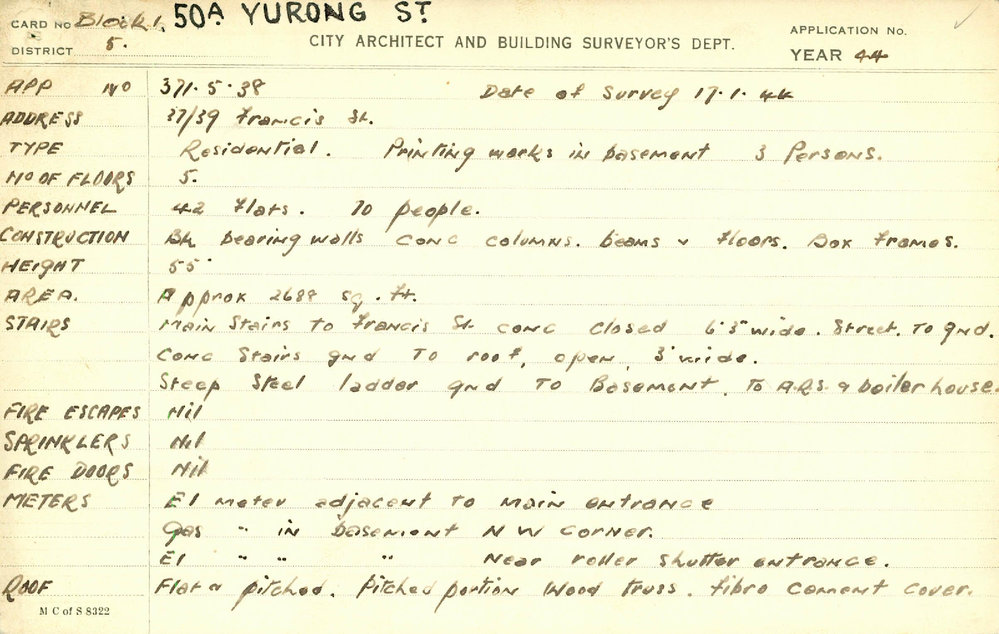 CARD No Block 1. 50A YURONG ST.
DISTRICT 5.
CITY ARCHITECT AND BUILDING SURVEYOR'S DEPT.
APPLICATION No.
YEAR 44
APP No 371·5·38 Date of Survey 17·1·44
ADDRESS 37/39 Francis St.
TYPE Residential. Printing works in basement 3 Persons.
No OF FLOORS 5.
PERSONNEL 42 Flats. 70 people.
CONSTRUCTION Bk bearing walls conc columns. beams & floors. Box Frames.
HEIGHT 55'
AREA. Approx 2688 sq. ft.
STAIRS Main Stairs to Francis St conc closed 6'3" wide. Street. To gnd.
Conc Stairs gnd To roof, open, 3' wide.
Steep Steel ladder gnd To Basement. To A.R.S. & boiler house.
FIRE ESCAPES Nil
SPRINKLERS Nil
FIRE DOORS Nil
METERS El meter adjacent to main entrance
Gas " in basement N W corner.
El " " " Near roller shutter entrance.
ROOF Flat & pitched. Pitched portion Wood Truss. Fibro cement cover.
M C of S 8322